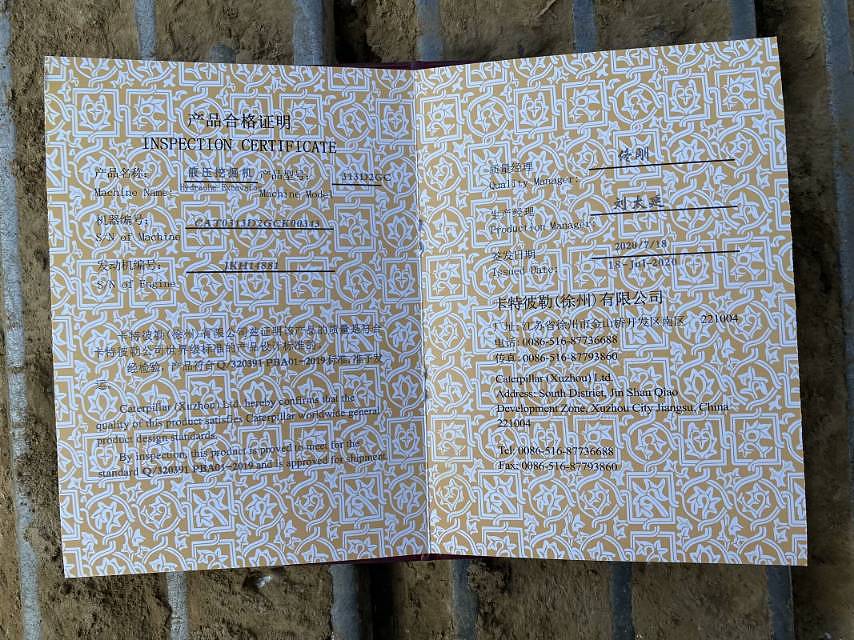 产品合格证明
INSPECTION CERTIFICATE
产品名称: 液压挖掘机 产品型号: 313D2GC
Machine Name: Hydraulic Excavator Machine Model
机器编号: CAT0313D2GCK00343
S/N of Machine
发动机编号: JKH14881
S/N of Engine
卡特彼勒(徐州)有限公司兹证明该产品的质量是符合
卡特彼勒公司世界级标准的产品设计标准的。
经检验, 产品符合Q/320391 PBA01-2019标准,准予发
运。
Caterpillar (Xuzhou) Ltd. hereby confirms that the
quality of this product satisfies Caterpillar worldwide general
product design standards.
By inspection, this product is proved to meet for the
standard Q/320391 PBA01-2019 and is approved for shipment.
质量经理
Quality Manager:
生产经理 刘
Production Manager:
签发日期 2020/7/18
Issued Date: 18-Jul-2020
卡特彼勒(徐州)有限公司
厂址:江苏省徐州市金山桥开发区南区 221004
电话: 0086-516-87736688
传真: 0086-516-87793860
Caterpillar (Xuzhou) Ltd.
Address: South District, Jin Shan Qiao
Development Zone, Xuzhou City Jiangsu, China
221004
Tel: 0086-516-87736688
Fax: 0086-516-87793860